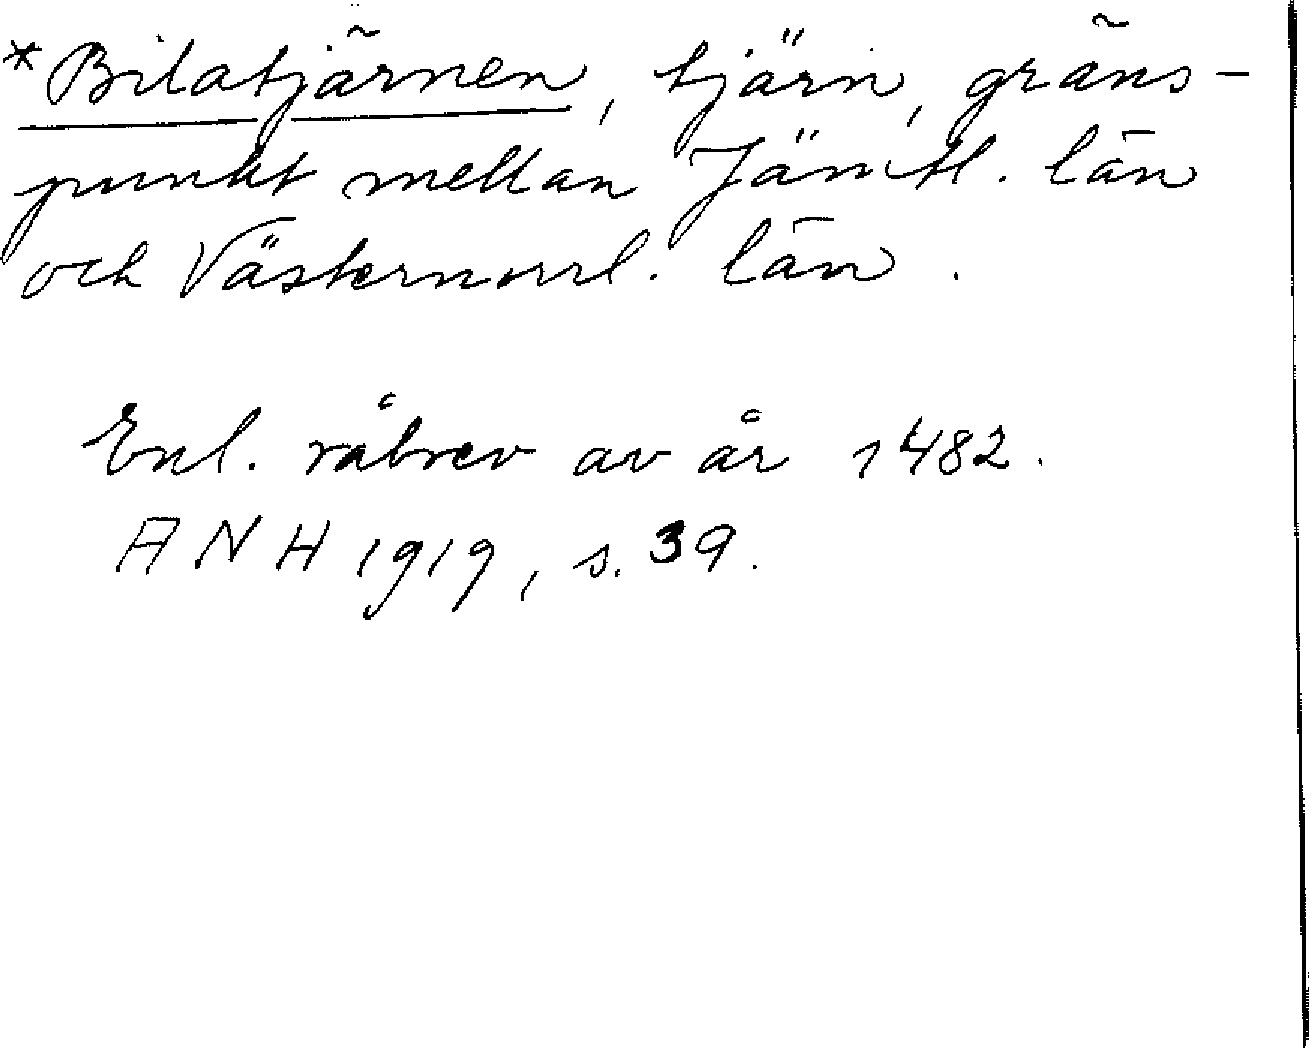 *Bilatjärnen, tjärn, gräns-
punkt mellan Jämtl. län
och Västernorrl. län.
Enl. råbrev av år 1482.
ANH 1919, s. 39.